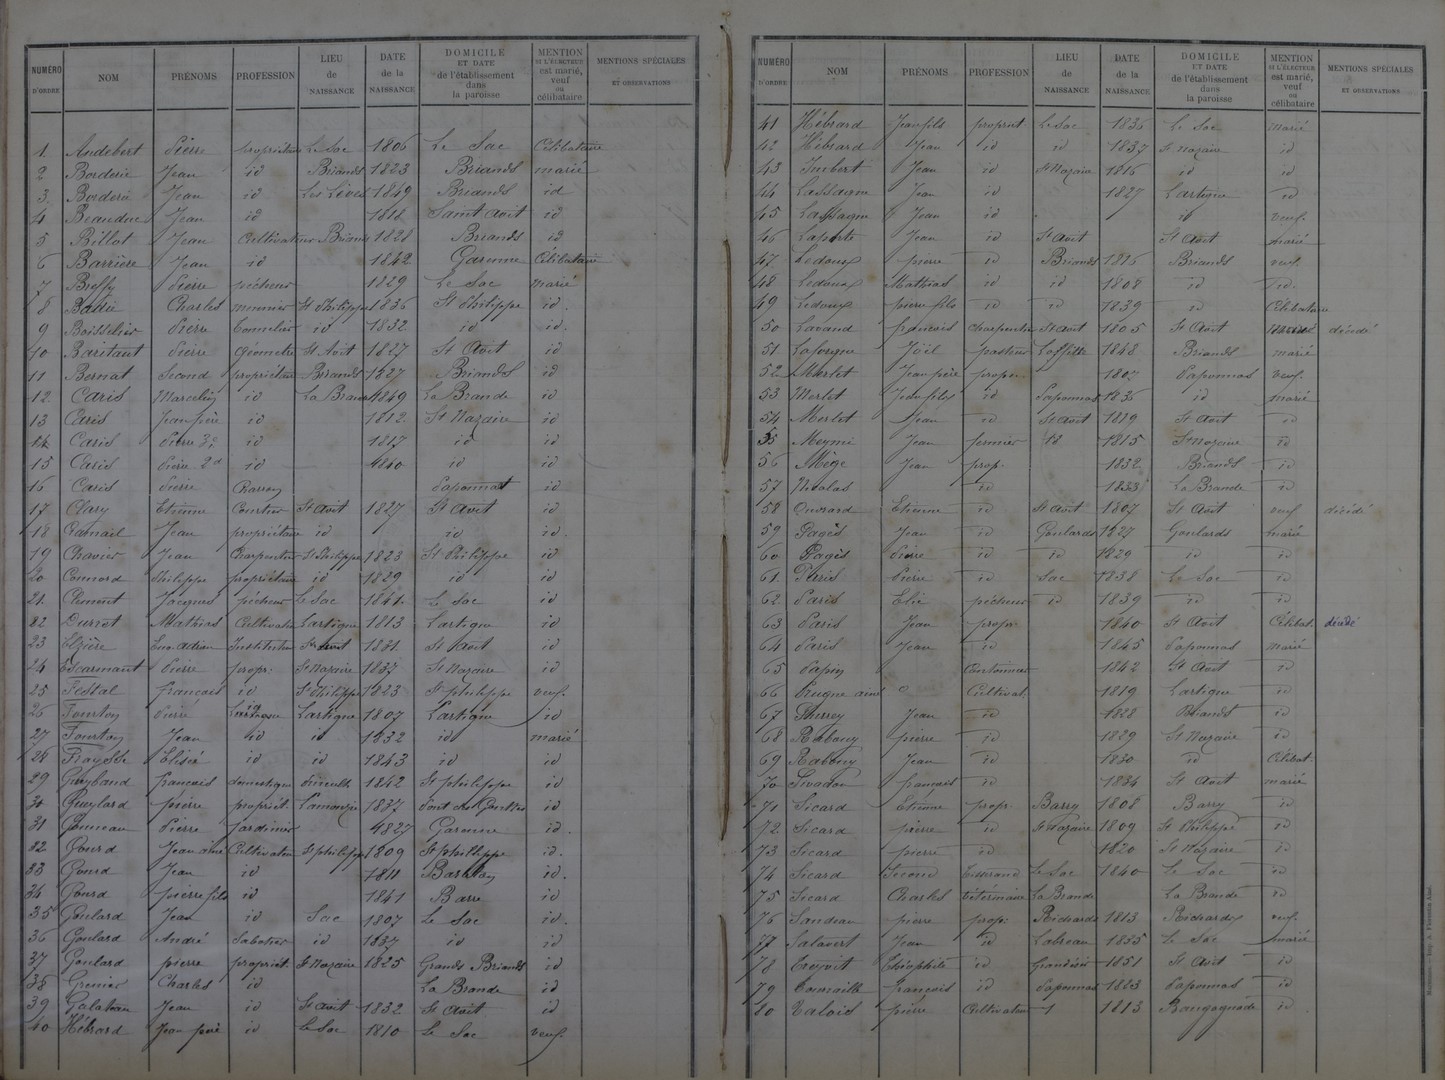 NUMÉRO D'ORDRE NOM PRÉNOMS PROFESSION LIEU de NAISSANCE DATE de la NAISSANCE DOMICILE ET DATE de l'établissement dans la paroisse MENTION SI L'ÉLECTEUR est marié, veuf ou célibataire MENTIONS SPÉCIALES ET OBSERVATIONS
1 Audebert Pierre propriétaire Le Sac 1806 Le Sac Célibataire
2 Borderie Jean id Briands 1823 Briands marié
3 Borderie Jean id Les Lèves 1849 Briands id
4 Beauduc Jean id 1811 Saint Avit id
5 Billot Jean Cultivateur Briands 1828 Briands id
6 Barrière Jean id 1842 Garonne Célibataire
7 Pierre pécheur 1829 Le Sac marié
8 Charles meunier St Philippe 1836 St Philippe id.
9 Boisselier Pierre tonnelier id 1832 id id.
10 Baritaut Pierre Géomètre St Avit 1827 St Avit id
11 Bernat Second propriétaire Briands 1827 Briands id
12 Caris Marcelin id La Brande 1849 La Brande id
13 Caris Jean père id 1812 St Nazaire id
14 Caris Pierre 3e id 1817 id id
15 Caris Pierre 2d id 1840 id id
16 Caris Pierre Charron Paponnat id
17 Clary Etienne St Avit 1827 St Avit id
18 Jean propriétaire id id id.
19 Chavier Jean Charpentier St Philippe 1823 St Philippe id
20 Connord Philippe propriétaire id 1829 id id
21 Clément Jacques pécheur Le Sac 1841 Le Sac id
22 Durret Mathias Cultivateur Lartigue 1813 Lartigue id
23 Elzière Instituteur 1831 St Avit id
24 Escarmant Pierre propr. St Nazaire 1837 St Nazaire id
25 Festal françois id St Philippe 1823 St philippe veuf.
26 Fourton Pierre id Lartigue 1807 Lartigue id
27 Fourton Jean id id 1832 id marié
28 Fraysse Elisée id id 1843 id id
29 françois domestique 1842 St philippe id
30 Guylard pierre propriét. 1837 id
31 Gouneau Pierre Jardinier 1827 Garonne id.
32 Gourd Jean aîné Cultivateur St philippe 1809 St philippe id.
33 Gourd Jean id 1811 id.
34 Gourd pierre fils id 1841 Barre id
35 Goulard Jean id Sac 1807 Le Sac id.
36 Goulard André Sabotier id 1837 id id
37 Goulard pierre propriét. St Nazaire 1825 Grands Briands id
38 Grenier Charles id La Brande id
39 Galateau Jean id St Avit 1832 St Avit id
40 Hébrard Jean père id Le Sac 1810 Le Sac veuf.
NUMÉRO D'ORDRE NOM PRÉNOMS PROFESSION LIEU de NAISSANCE DATE de la NAISSANCE DOMICILE ET DATE de l'établissement dans la paroisse MENTION SI L'ÉLECTEUR est marié, veuf ou célibataire MENTIONS SPÉCIALES ET OBSERVATIONS
41 Hébrard Jean fils propriét Le Sac 1836 Le Sac marié
42 Hébrard Jean id id 1837 St Nazaire id
43 Imbert Jean id St Nazaire 1816 id id
44 Lassagne Jean id 1827 Lartigue id
45 Lassagne Jean id id veuf.
46 Laporte Jean id St Avit St Avit marié
47 Ledoux pierre id Briands 1816 Briands veuf.
48 Ledoux Mathias id id 1808 id id.
49 Ledoux pierre fils id id 1839 id Célibataire
50 Lavand françois Charpentier St Avit 1805 St Avit décédé
51 Laforgue Joël pasteur Laffitte 1848 Briands marié
52 Merlet Jean père propr. 1807 Paponnas veuf.
53 Merlet Jean fils id Paponnas 1836 id marié
54 Merlet Jean id St Avit 1819 St Avit id
55 Meymi Jean fermier id 1815 St Nazaire id
56 Mège Jean prop. 1832 Briands id
57 Nicolas id 1833 La Brande id
58 Ouvrard Etienne id St Avit 1807 St Avit veuf décédé
59 Pagès Jean id Goulards 1827 Goulards marié
60 Pagès Pierre id id 1829 id id
61 Paris Pierre id Sac 1838 Le Sac id
62 Paris Elie pécheur id 1839 id id
63 Paris Jean propr 1840 St Avit Célibat. décédé
64 Paris Jean id 1845 Paponnas marié
65 Papin Cantonnier 1842 St Avit id
66 Prugne ainé Cultivat. 1819 Lartigue id
67 Jean id 1828 Briands id
68 Rabouy pierre id 1829 St Nazaire id
69 Rabouy Jean id 1830 id Célibat.
70 Sivadon françois id 1834 St Avit marié
71 Sicard Etienne propr. Barry 1808 Barry id
72 Sicard pierre id St Nazaire 1809 St Philippe id
73 Sicard pierre id 1820 St Nazaire id
74 Sicard Second Tisserand Le Sac 1840 Le Sac id
75 Sicard Charles vétérinaire La Brande La Brande id
76 Sandeau pierre propr. Richards 1813 Richards veuf.
77 Salavert Jean id Labreau 1835 Le Sac marié
78 Théophile id 1851 St Avit id
79 françois id Paponnas 1823 Paponnas id
80 Valois pierre Cultivateur 1813 id